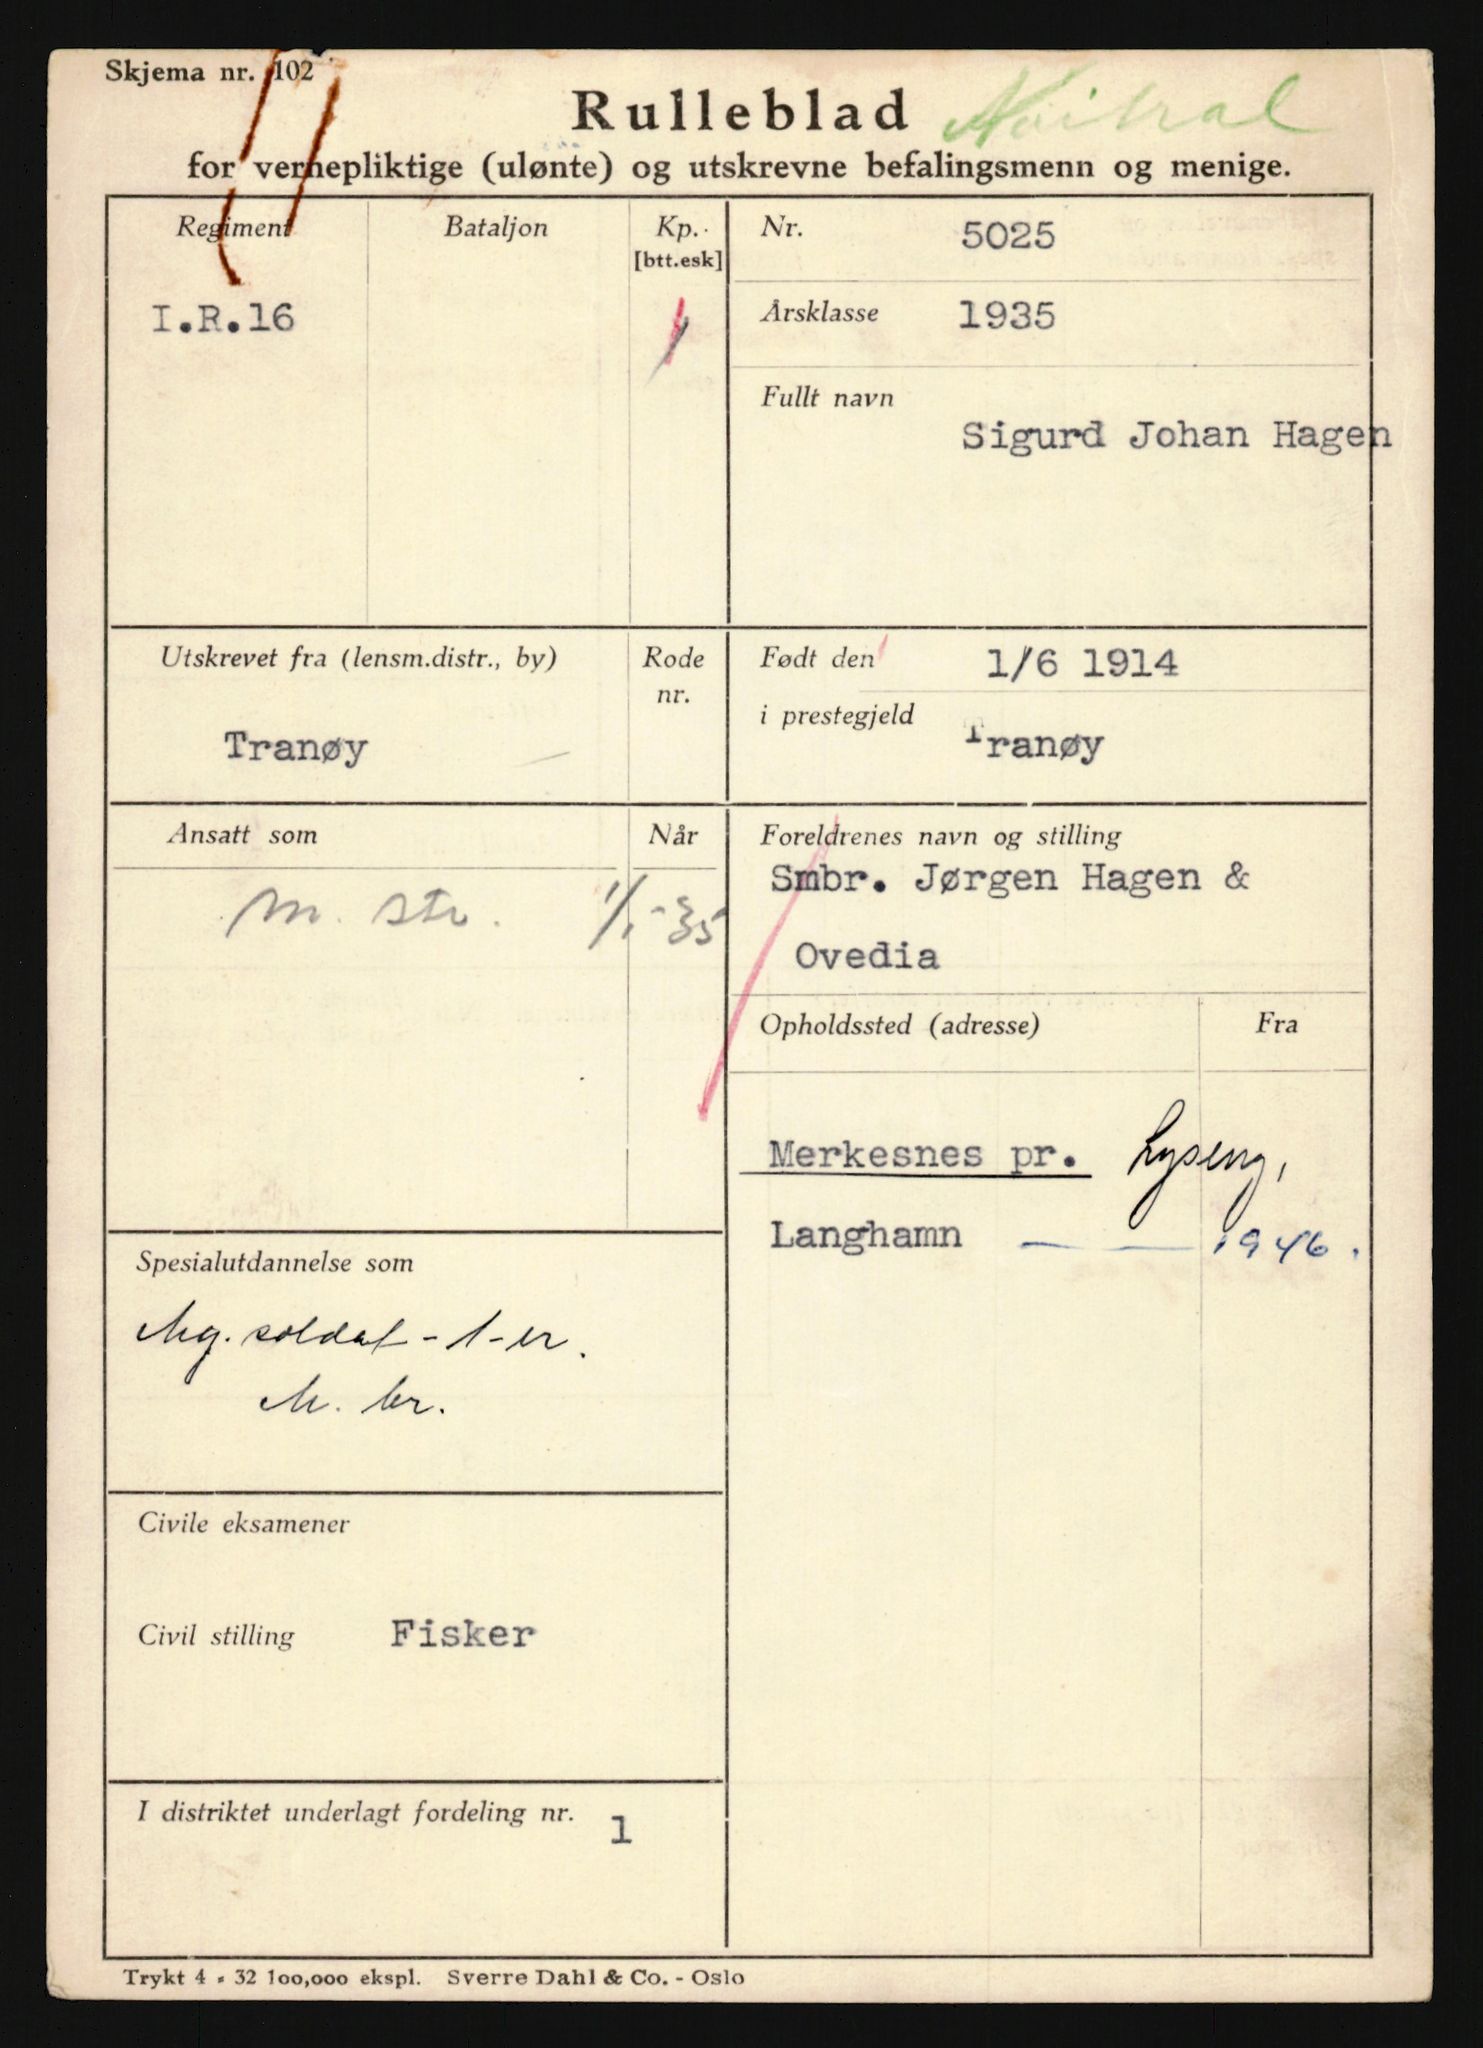 Skjema nr. 102
Nöitral
Rulleblad
for vernepliktige (ulønte) og utskrevne befalingsmenn og menige.
Regiment
Bataljon
Kp.
[btt.esk]
I.R.16
1
Nr. 5025
Årsklasse 1935
Fullt navn
Sigurd Johan Hagen
Utskrevet fra (lensm.distr., by)
Rode
nr.
Tranøy
Født den 1/6 1914
i prestegjeld
Tranøy
Ansatt som
Når
M. str. 1/1-35
Foreldrenes navn og stilling
Smbr. Jørgen Hagen &
Ovedia
Opholdssted (adresse)
Fra
Merkesnes pr. Lyseng,
Langhamn — — 1946.
Spesialutdannelse som
Mg. soldat - 1-er.
M. br.
Civile eksamener
Civil stilling Fisker
I distriktet underlagt fordeling nr. 1
Trykt 4 - 32 100,000 ekspl. Sverre Dahl & Co. - Oslo